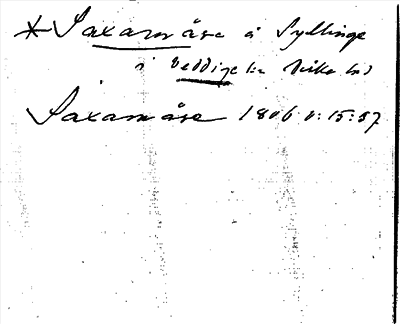 * Saxamåse å Syllinge
i Veddige sn Viske hd
Saxamåse 1806 v: 15:57